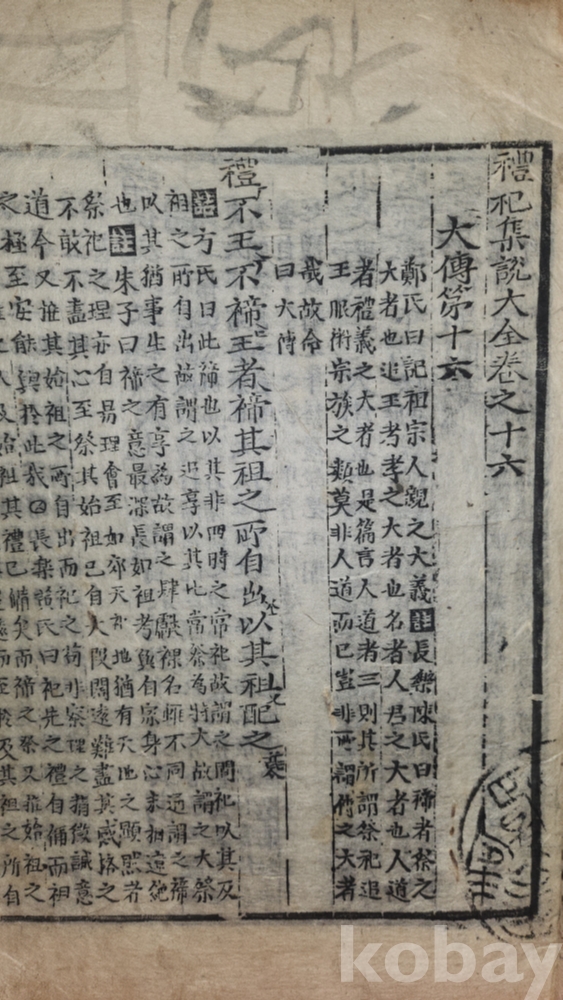 禮記集說大全卷之十六
大傳第十六
鄭氏曰記祖宗人親之大義註長樂陳氏曰禘者祭之
大者也追王考孝之大者也名者人君之大者也人道
者禮義之大者也是篇言人道者三則其所謂祭祀追
王服術宗族之類莫非人道而已豈非所謂傳之大者
哉故命
曰大傳
禮不王不禘王者禘其祖之所自出以其祖配之
註方氏曰此禘也以其非四時之常祀故謂之間祀以其及
祖之所自出故謂之追享以其比常祭為特大故謂之大祭
以其猶事生之有享焉故謂之肆獻祼名雖不同通謂之禘
也註朱子曰禘之意最深長如祖考與自家身心未相遼絶
祭祀之理亦自易理會至如郊天祀地猶有天地之顯然者
不敢不盡其心至祭其始祖已自大段闊遠難盡其感格之
道今又推其始祖之所自出而祀之苟非察理之精微誠意
之極至安能與於此哉長樂陳氏曰祀先之禮自禰而祖
kobay